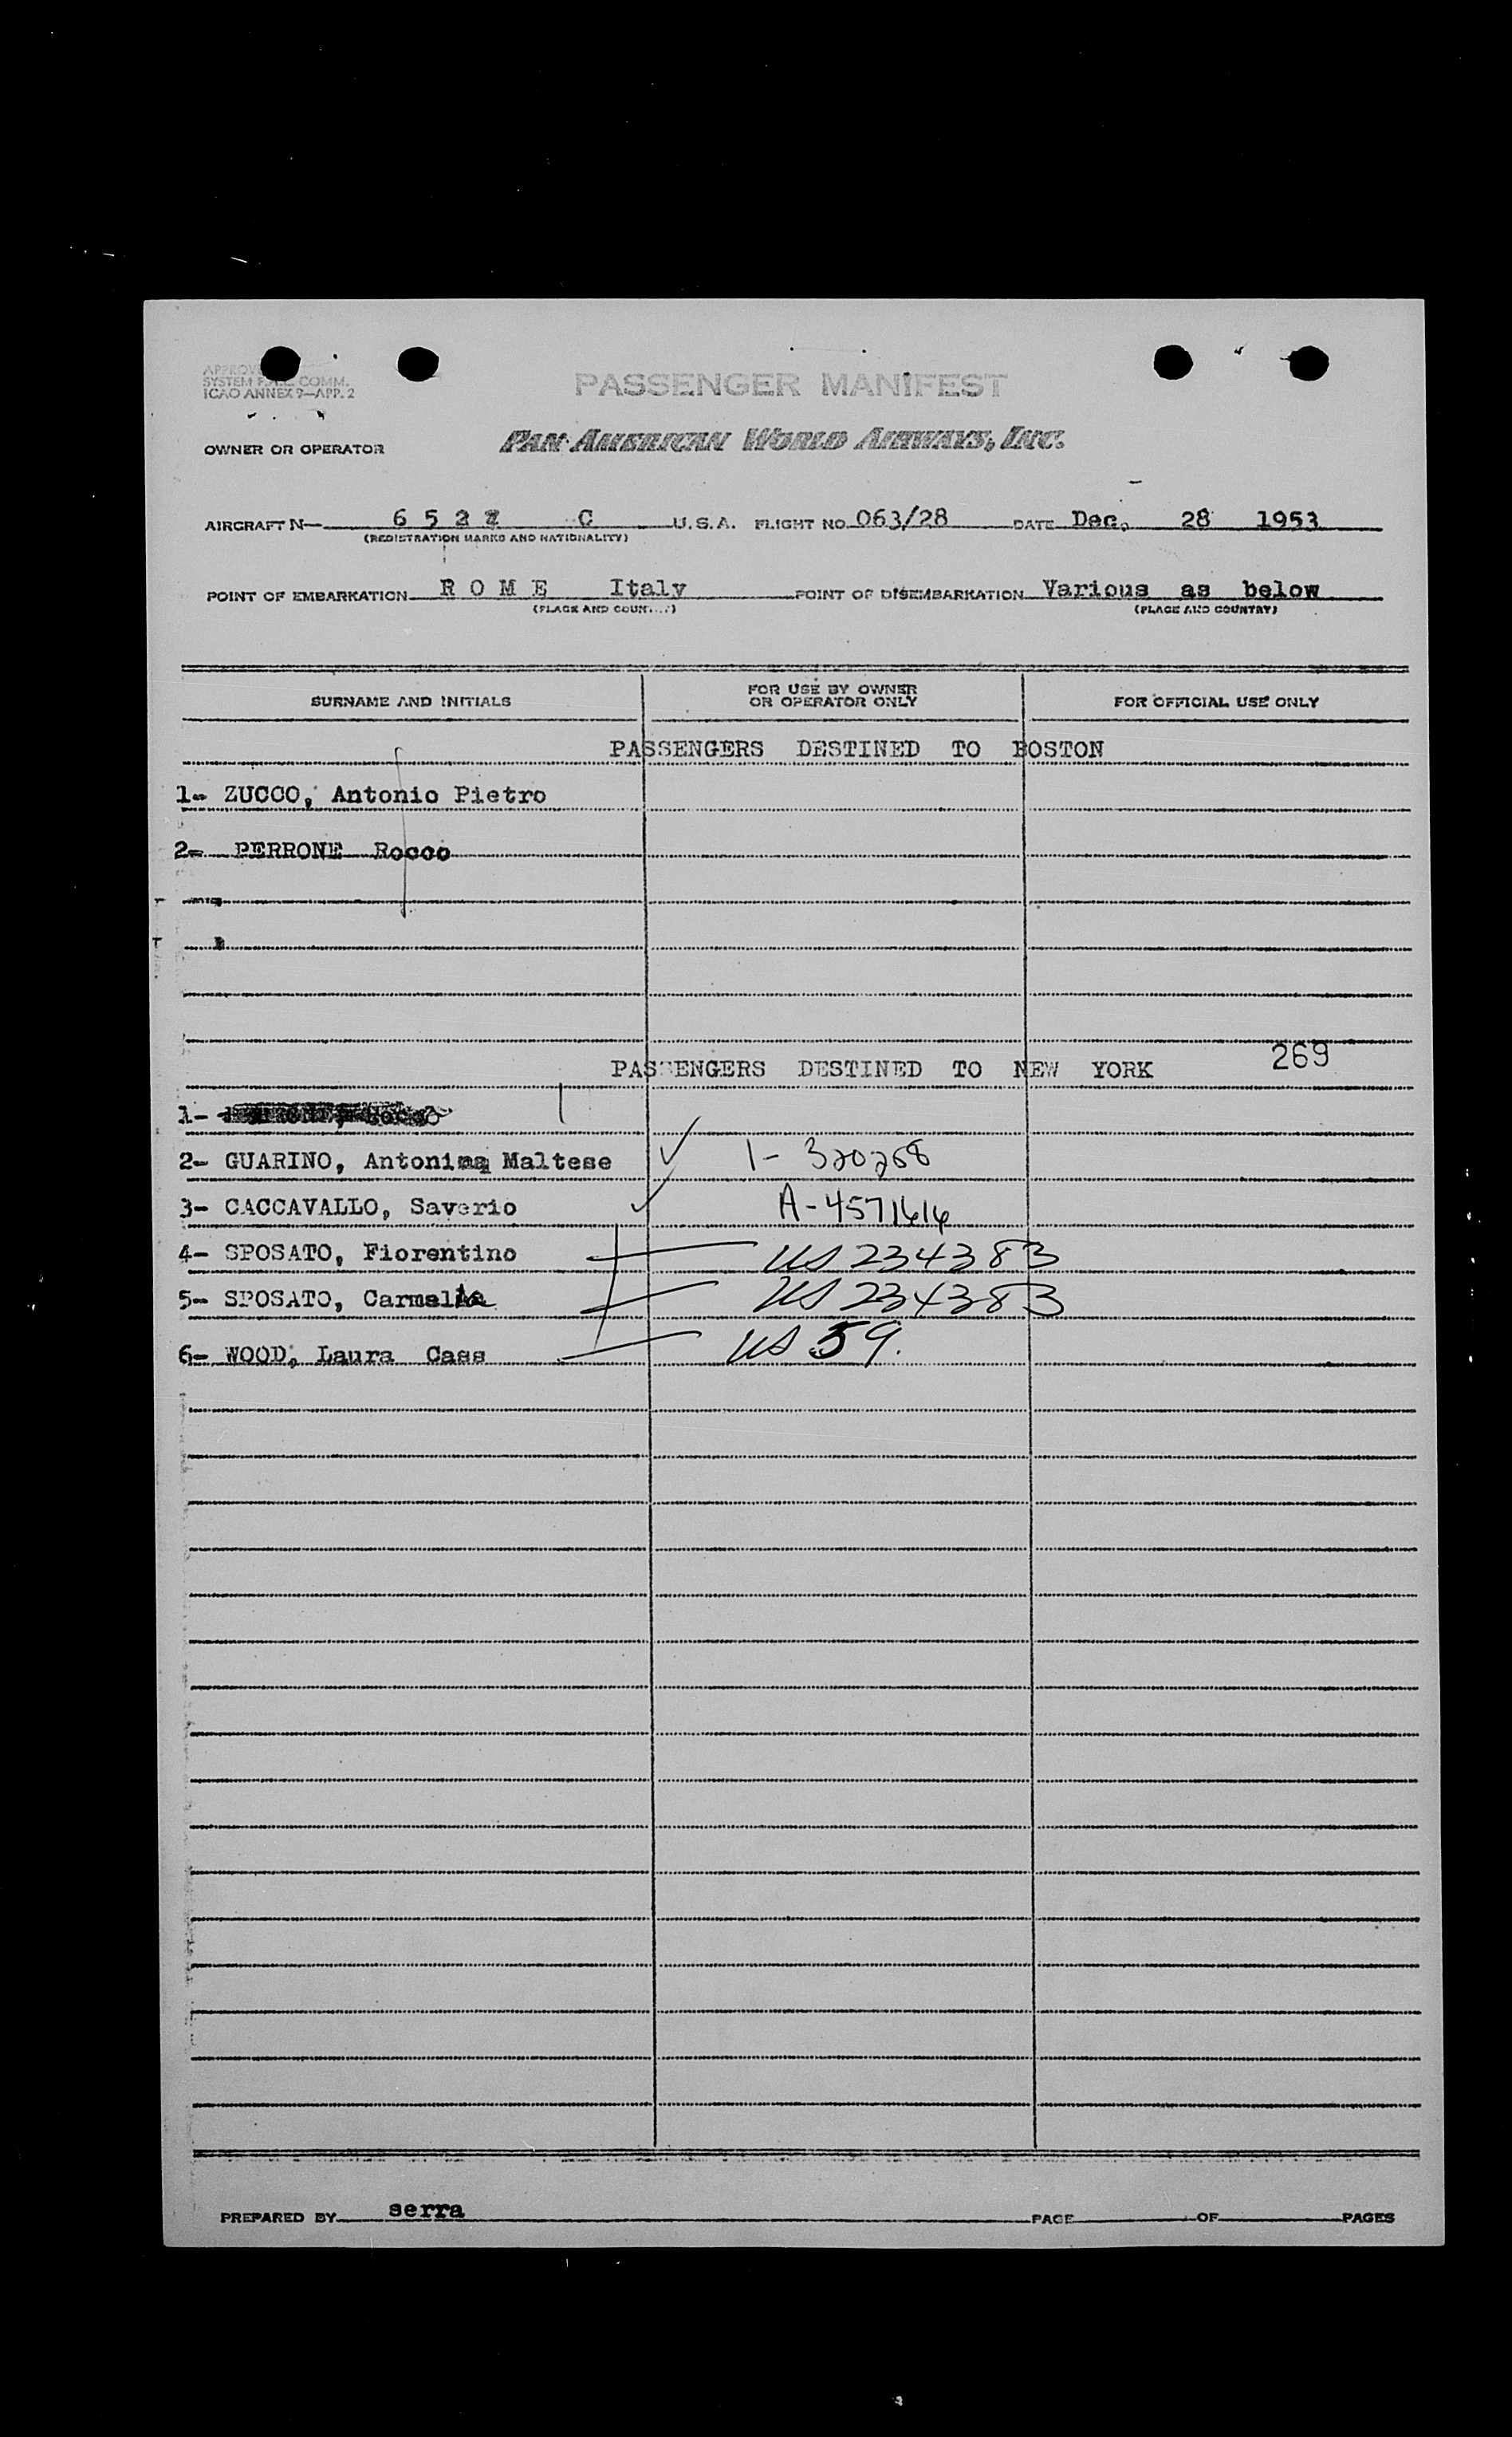 PASSENGER MANIFEST
SYSTEM COMM.
ICAO ANNEX 9—APP. 2
OWNER OR OPERATOR PAN AMERICAN WORLD AIRWAYS, INC.
AIRCRAFT N— 6 5 2 C U.S.A. FLIGHT NO. 063/28 DATE Dec. 28 1953
(REGISTRATION MARKS AND NATIONALITY)
POINT OF EMBARKATION R O M E Italy POINT OF DISEMBARKATION Various as below
(PLACE AND (PLACE AND COUNTRY)
SURNAME AND INITIALS FOR USE BY OWNER OR OPERATOR ONLY FOR OFFICIAL USE ONLY
PASSENGERS DESTINED TO BOSTON
1- ZUCCO, Antonio Pietro
2- PERRONE Rocco
269
PASSENGERS DESTINED TO NEW YORK
1-
2- GUARINO, Antonina Maltese 1- 320268
3- CACCAVALLO, Saverio A-4571616
4- SPOSATO, Fiorentino US 234383
5- SPOSATO, Carmela US 234383
6- WOOD, Laura Cass US 59.
PREPARED BY serra PAGE OF PAGES